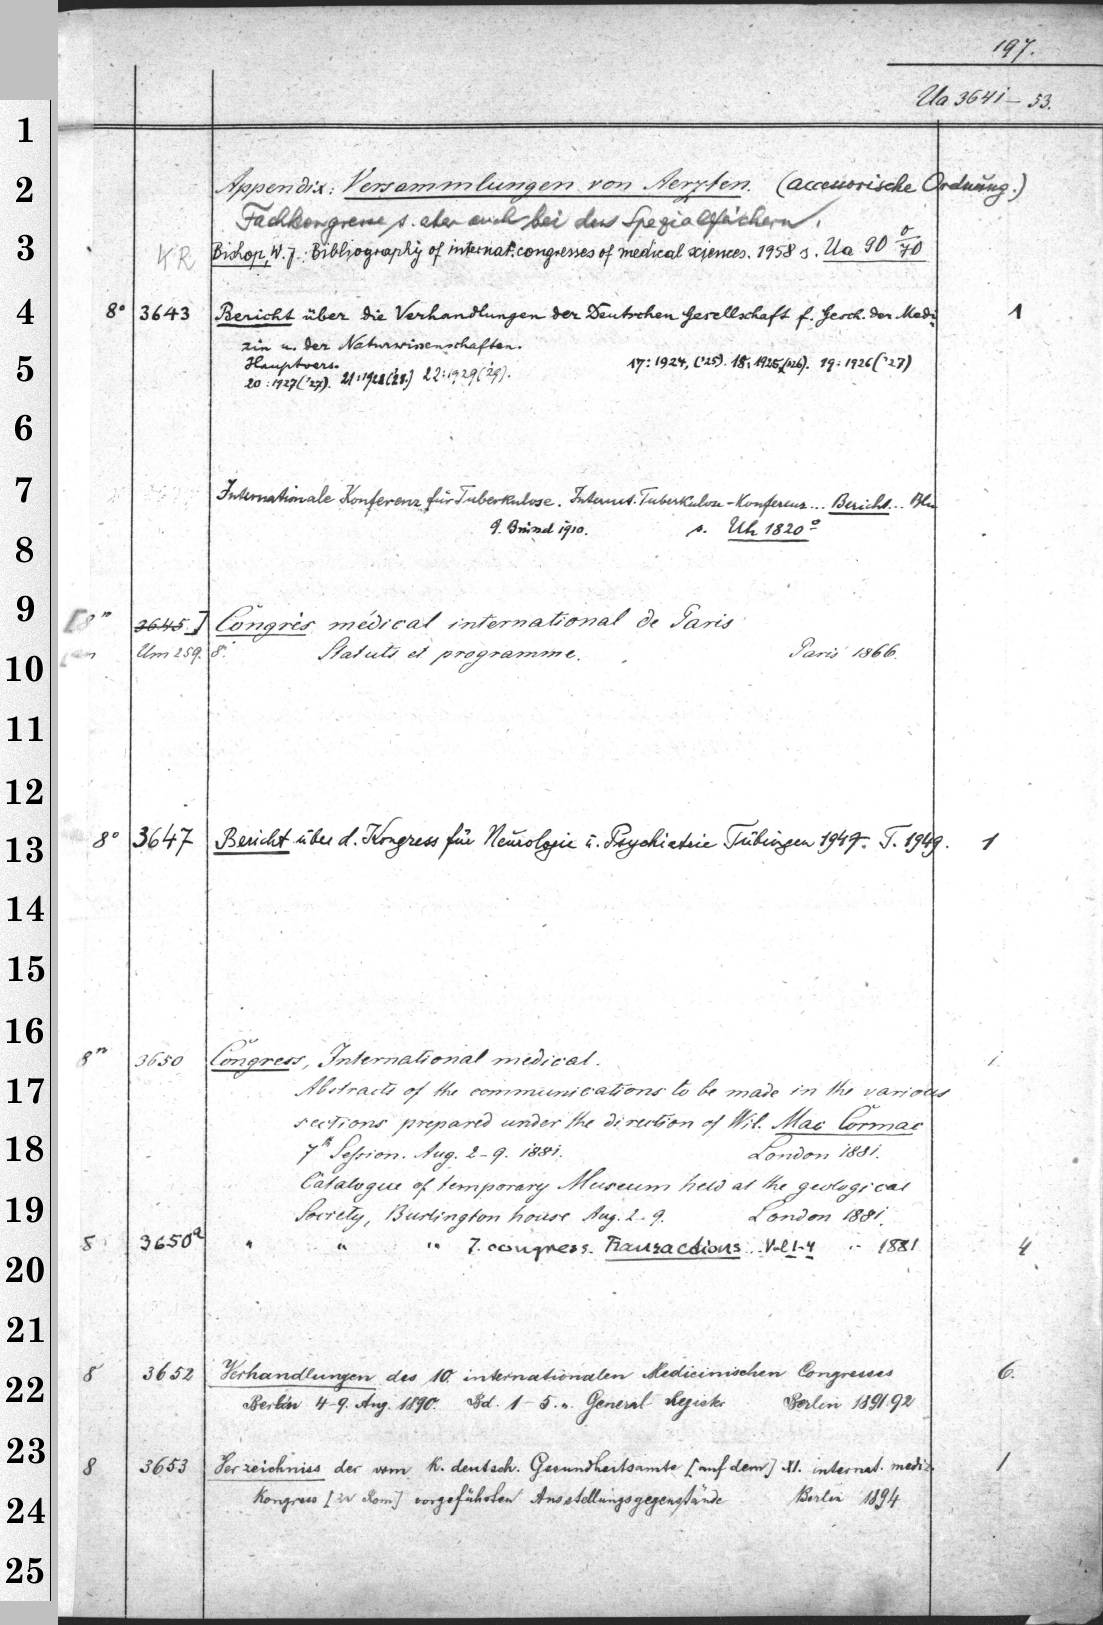 197.
Ua 3641-53.
1
2
Appendix: Versammlungen von Aerzten. (accessorische Ordnung.)
Fachkongresse s. aber auch bei den Spezialfächern.
3
KR Bishop, W. J.: Bibliography of internat. congresses of medical sciences. 1958 s. Ua 90 0/70
4
8° 3643 Bericht über die Verhandlungen der Deutschen Gesellschaft f. Gesch. der Medi- 1
zin u. der Naturwissenschaften.
5
Hauptvers. 17: 1924, ('25). 18: 1925, ('26). 19: 1926 ('27)
20: 1927 ('27). 21: 1928 ('28.) 22: 1929 ('29).
6
7
Internationale Konferenz für Tuberkulose. Internat. Tuberkulose-Konferenz... Bericht... Bln
9. Brüssel 1910. s. Uh 1820°
8
9
[8" 3645.] Congrès médical international de Paris
Um 259. 8°. Statuts et programme. Paris 1866.
10
11
12
13
8° 3647 Bericht über d. Kongress für Neurologie u. Psychiatrie Tübingen 1947. T. 1949. 1
14
15
16
8" 3650 Congress, International medical. 1.
17
Abstracts of the communications to be made in the various
sections prepared under the direction of Wil. Mac Cormac
18
7th Session. Aug. 2-9. 1881. London 1881.
Catalogue of temporary Museum held at the geological
19
Society, Burlington house Aug. 2-9. London 1881.
8 3650a " " " 7. congress. Transactions. Vol 1-4 " 1881 4
20
21
22
8 3652 Verhandlungen des 10. internationalen Medicinischen Congresses 6.
Berlin 4-9. Aug. 1890. Bd. 1-5 u. General Register Berlin 1891.92
23
8 3653 Verzeichniss der vom K. deutsch. Gesundheitsamte [auf dem] XI. internat. mediz. 1
24
Kongress [zu Rom] vorgeführten Ausstellungsgegenstände Berlin 1894
25